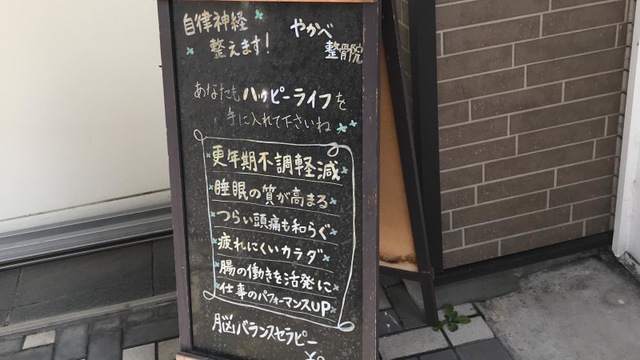 自律神経
整えます!
やかべ
整骨院
あなたもハッピーライフを
手に入れて下さいね
更年期不調軽減
睡眠の質が高まる
つらい頭痛も和らぐ
疲れにくいカラダ
腸の働きを活発に
仕事のパフォーマンスUP
脳バランスセラピー